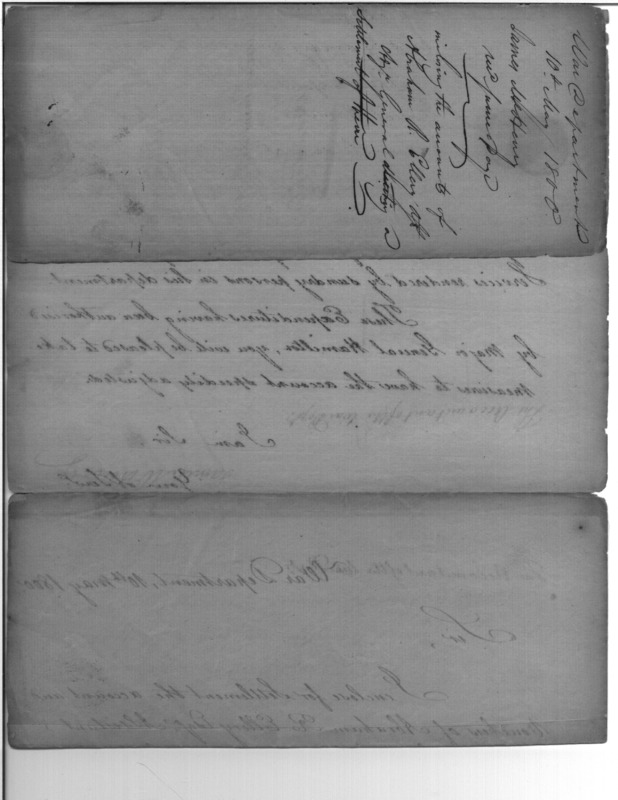 War Department
10th May 1800.
James McHenry
recd June Days
inclosing the accounts of
Abraham R. Ellery Asst
Adjt. General directing a
settlement of them
Services rendered by sunday persons in his department
These Expenditures having been authorised
by Major General Hamilton, you will be pleased to take
measures to have the account speedily adjusted.
The Accountant of the War Dept.
I am Sir
Your ob Servt
War Department, 10th May 1800
Sir,
I enclose for Settlement the account and
Vouchers of Abraham R. Ellery Esqr Assistant